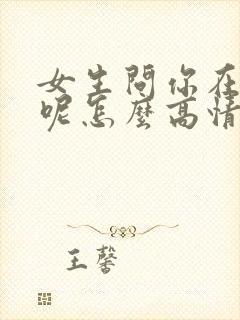 女生問你在
呢怎麼高情
王馨